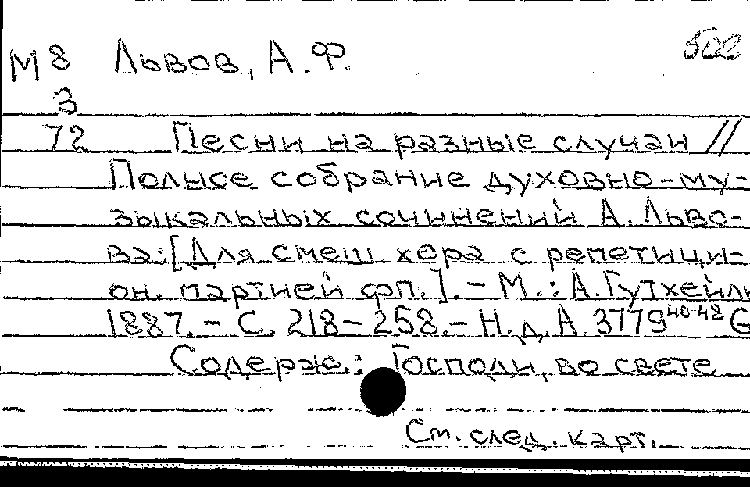 М 8 Львов, А.Ф. 502
3
72 Песни на разные случаи //
Полное собрание духовно-му-
зыкальных сочинений А. Льво-
ва: [Для смеш хора с репетици-
он. партией фп.]. - М.: А. Гутхейль
1887. - С. 218-258. - Н.д. А. 3779 40-48 G
Содерж.: Господи, во свете
См. след. карт.